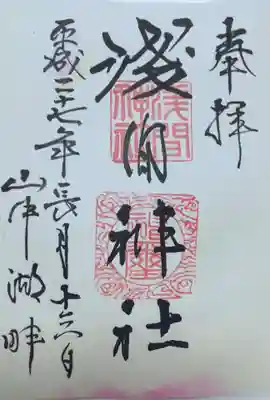 奉拝
浅間神社
平成二十七年長月十六日
山中湖畔